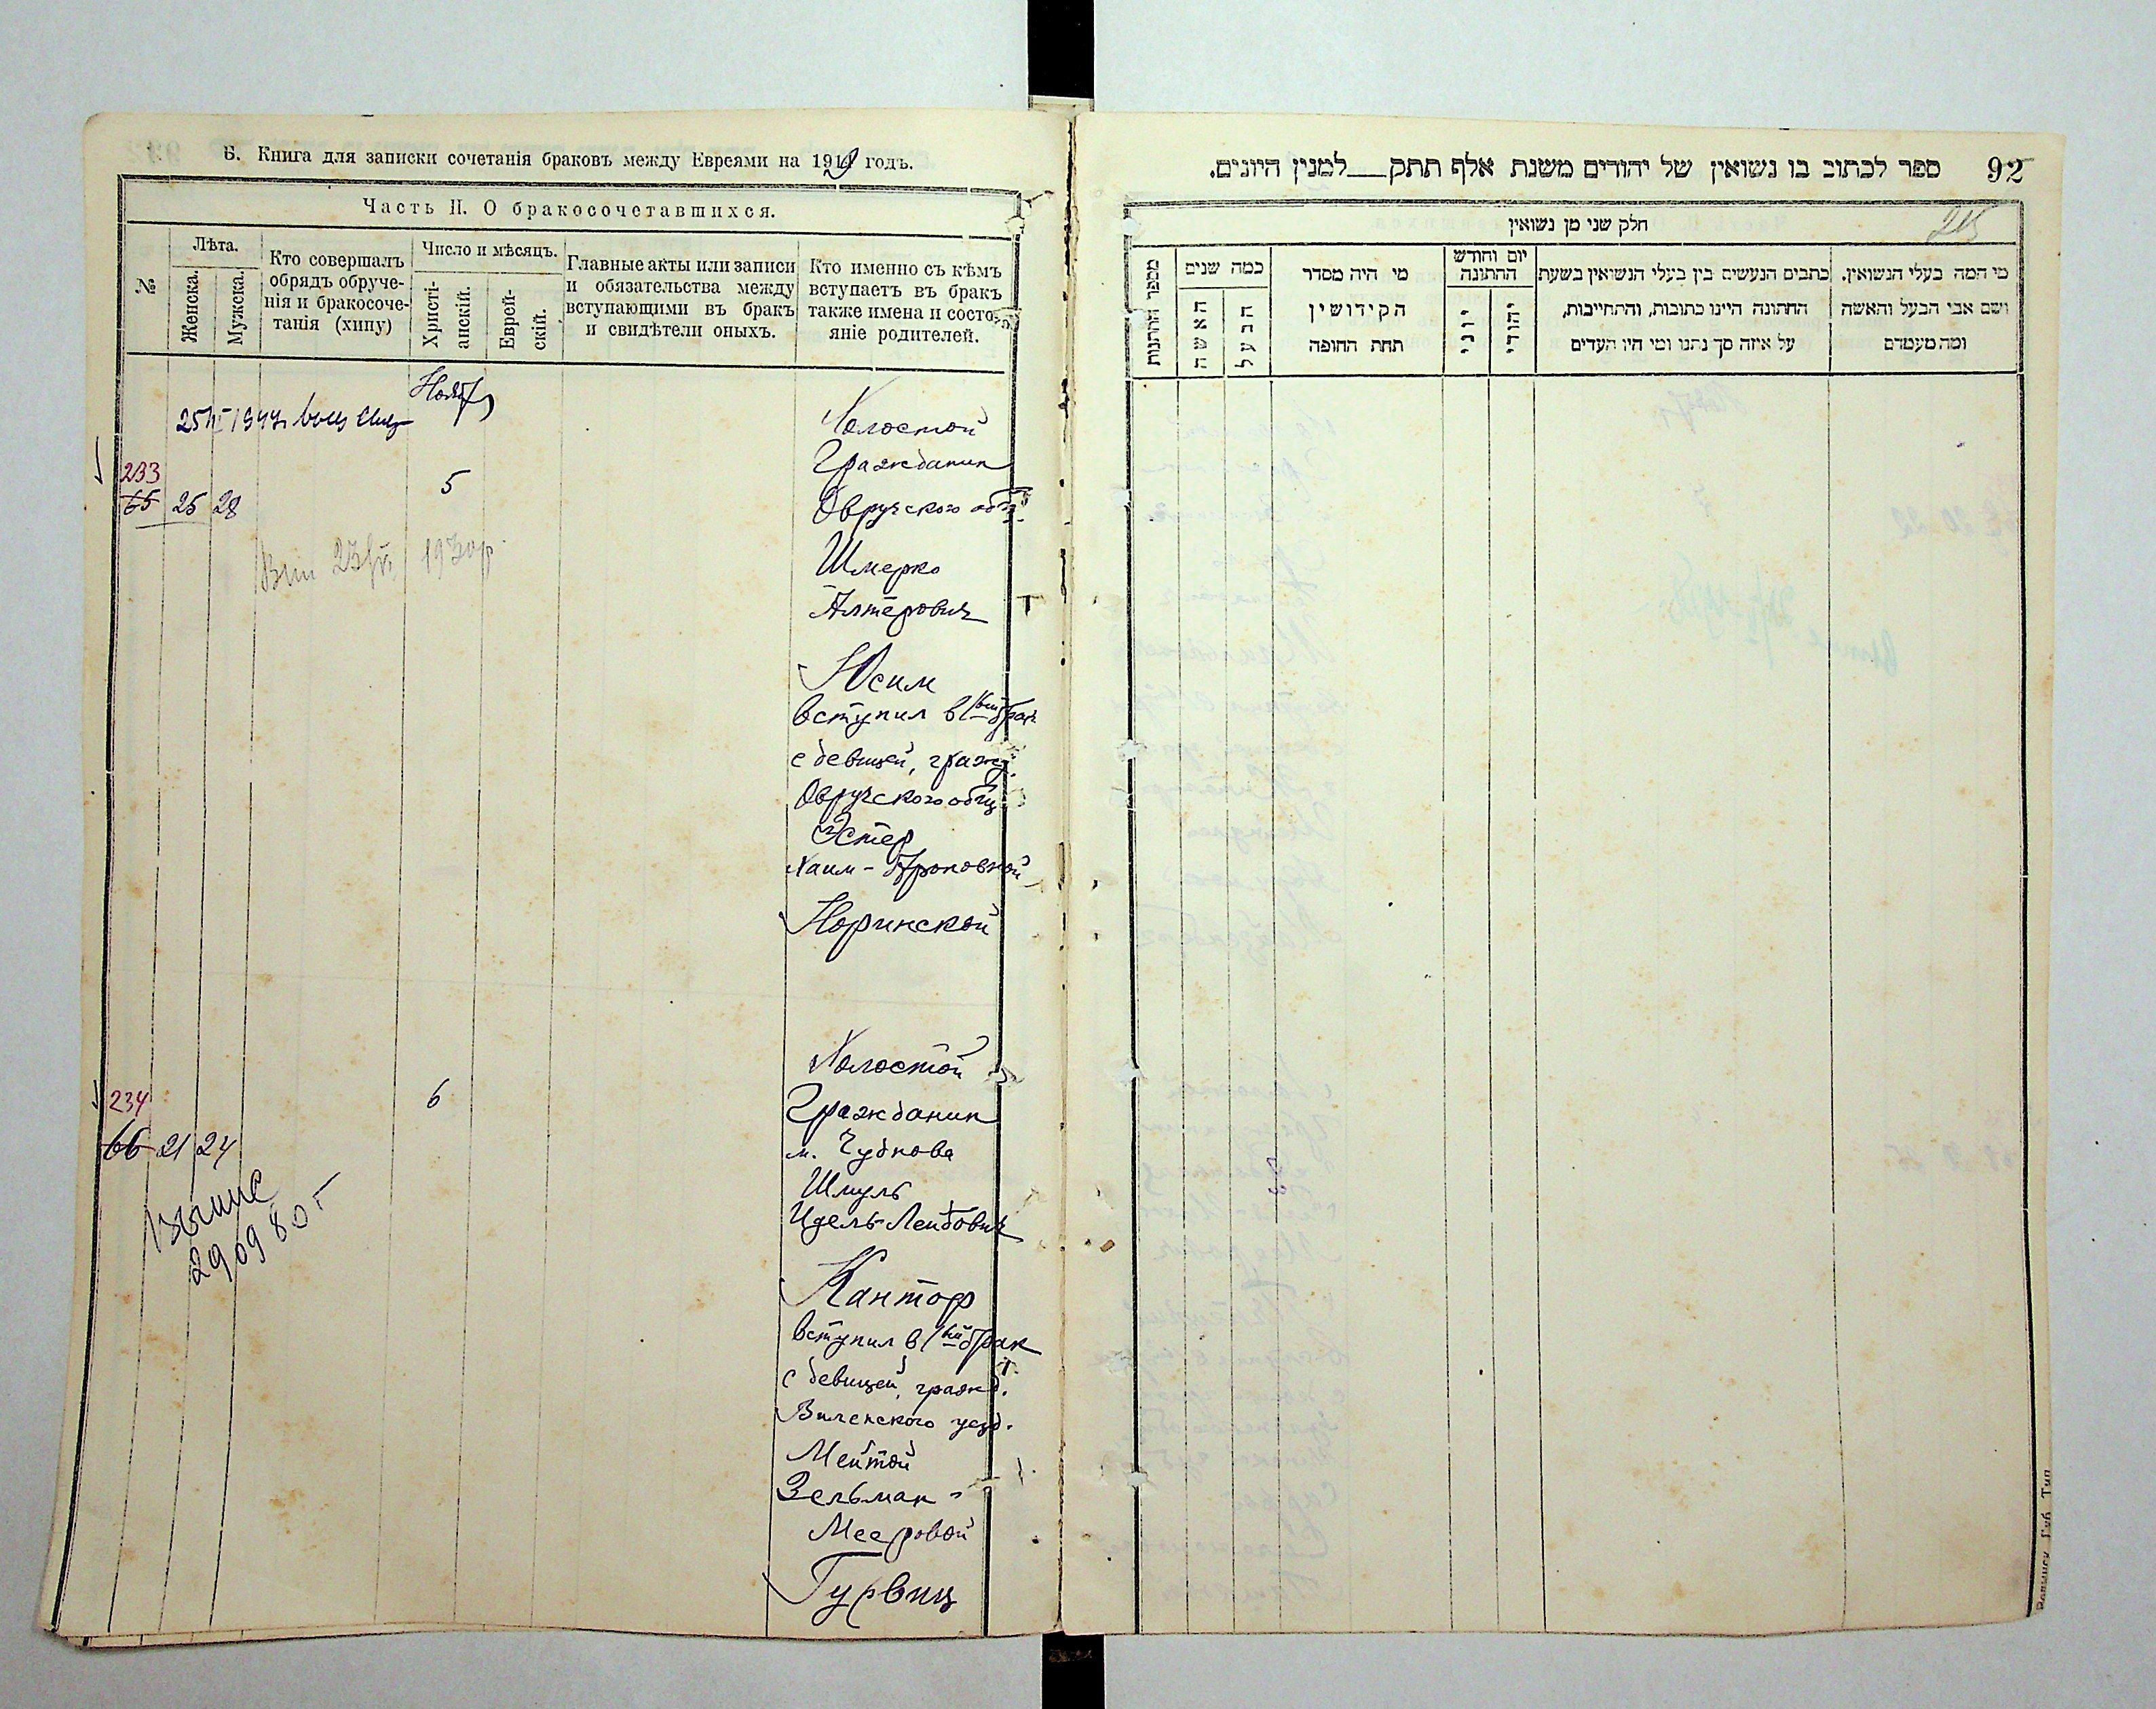 Б. Книга для записки сочетанія браковъ между Евреями на 1919 годъ.
Часть II. О бракосочетавшихся.
№
Лѣта.
Женска.
Мужска.
Кто совершалъ
обрядъ обруче-
нія и бракосоче-
танія (хипу)
Число и мѣсяцъ.
Христі-
анскій.
Еврей-
скій.
Главные акты или записи
и обязательства между
вступающими въ бракъ
и свидѣтели оныхъ.
Кто именно съ кѣмъ
вступаетъ въ бракъ
также имена и состо-
яніе родителей.
Ноябр
233
65 25 28
5
Холостой
Гражданин
Овручского общ.
Шмерко
Алтерович
Юсим
вступил в 1ый брак
с девицей, гражд.
Овручского общ
Эстер
Хаим-Ароновной
Норинской
234
66 21 24
6
Холостой
Гражданин
м. Чуднова
Шмуль
Идель-Лейбович
Кантор
вступил в 1ый брак
с девицей, гражд.
Виленского уезд.
Мейтой
Зельман-
Мееровой
Гурвиц
290980 г
92
ספר לכתוב בו נשואין של יהודים משנת אלף תתק__למנין היונים.
חלק שני מן נשואין
215
מספר החתנות
כמה שנים
האשה
הבעל
מי היה מסדר
הקידושין
תחת החופה
יום וחודש
החתונה
יוני
יהודי
כתבים הנעשים בין בעלי הנשואין בשעת
החתונה היינו כתובות, והתחייבות,
על איזה סך נתנו ומי היו העדים
מי המה בעלי הנשואין.
ושם אבי הבעל והאשה
ומה מעמדם